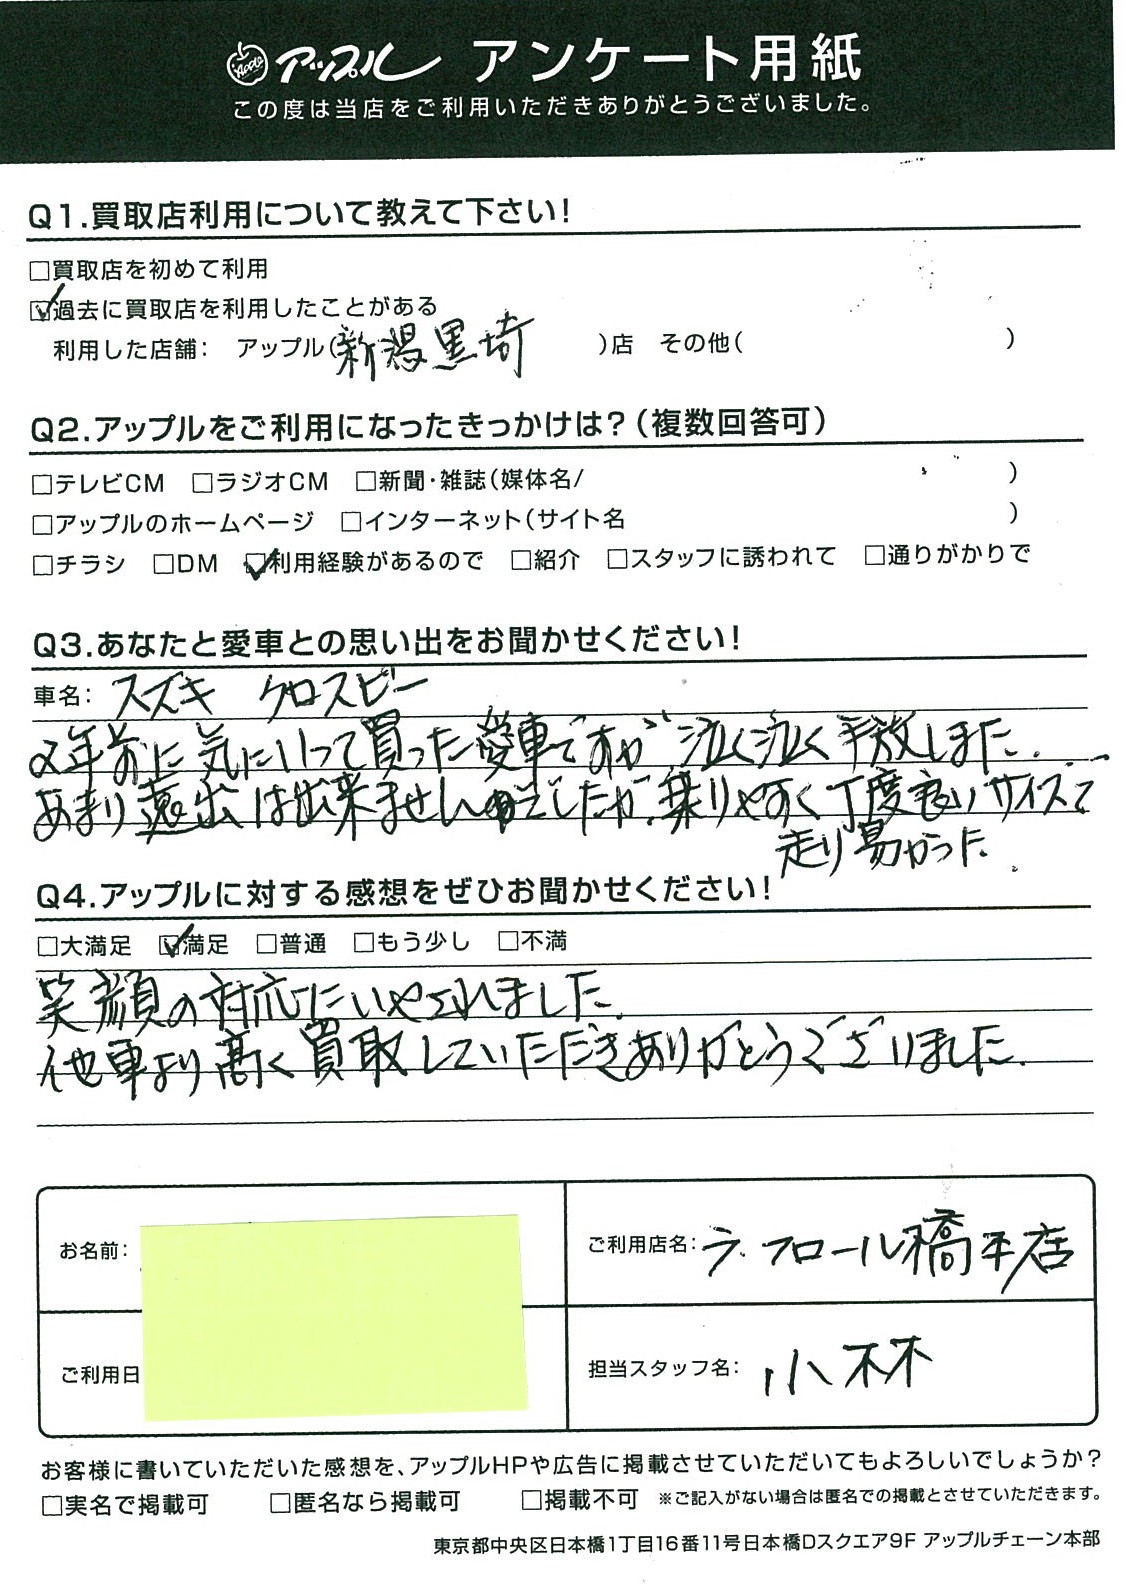 Apple アップル アンケート用紙
この度は当店をご利用いただきありがとうございました。
Q1.買取店利用について教えて下さい！
□買取店を初めて利用
☑過去に買取店を利用したことがある
利用した店舗： アップル（新潟黒埼）店 その他（ ）
Q2.アップルをご利用になったきっかけは？（複数回答可）
□テレビCM □ラジオCM □新聞・雑誌（媒体名/ ）
□アップルのホームページ □インターネット（サイト名 ）
□チラシ □DM ☑利用経験があるので □紹介 □スタッフに誘われて □通りがかりで
Q3.あなたと愛車との思い出をお聞かせください！
車名： スズキ クロスビー
2年前に気にいって買った愛車ですが泣く泣く手放しました.
あまり遠出は出来ませんでしたが、乗りやすく丁度良いサイズで
走り易かった.
Q4.アップルに対する感想をぜひお聞かせください！
□大満足 ☑満足 □普通 □もう少し □不満
笑顔の対応にいやされました.
他車より高く買取していただきありがとうございました.
お名前：
ご利用店名： ラ.フロール橋平店
ご利用日
担当スタッフ名： 小林
お客様に書いていただいた感想を、アップルHPや広告に掲載させていただいてもよろしいでしょうか？
□実名で掲載可 □匿名なら掲載可 □掲載不可 ※ご記入がない場合は匿名での掲載とさせていただきます。
東京都中央区日本橋1丁目16番11号日本橋Dスクエア9F アップルチェーン本部